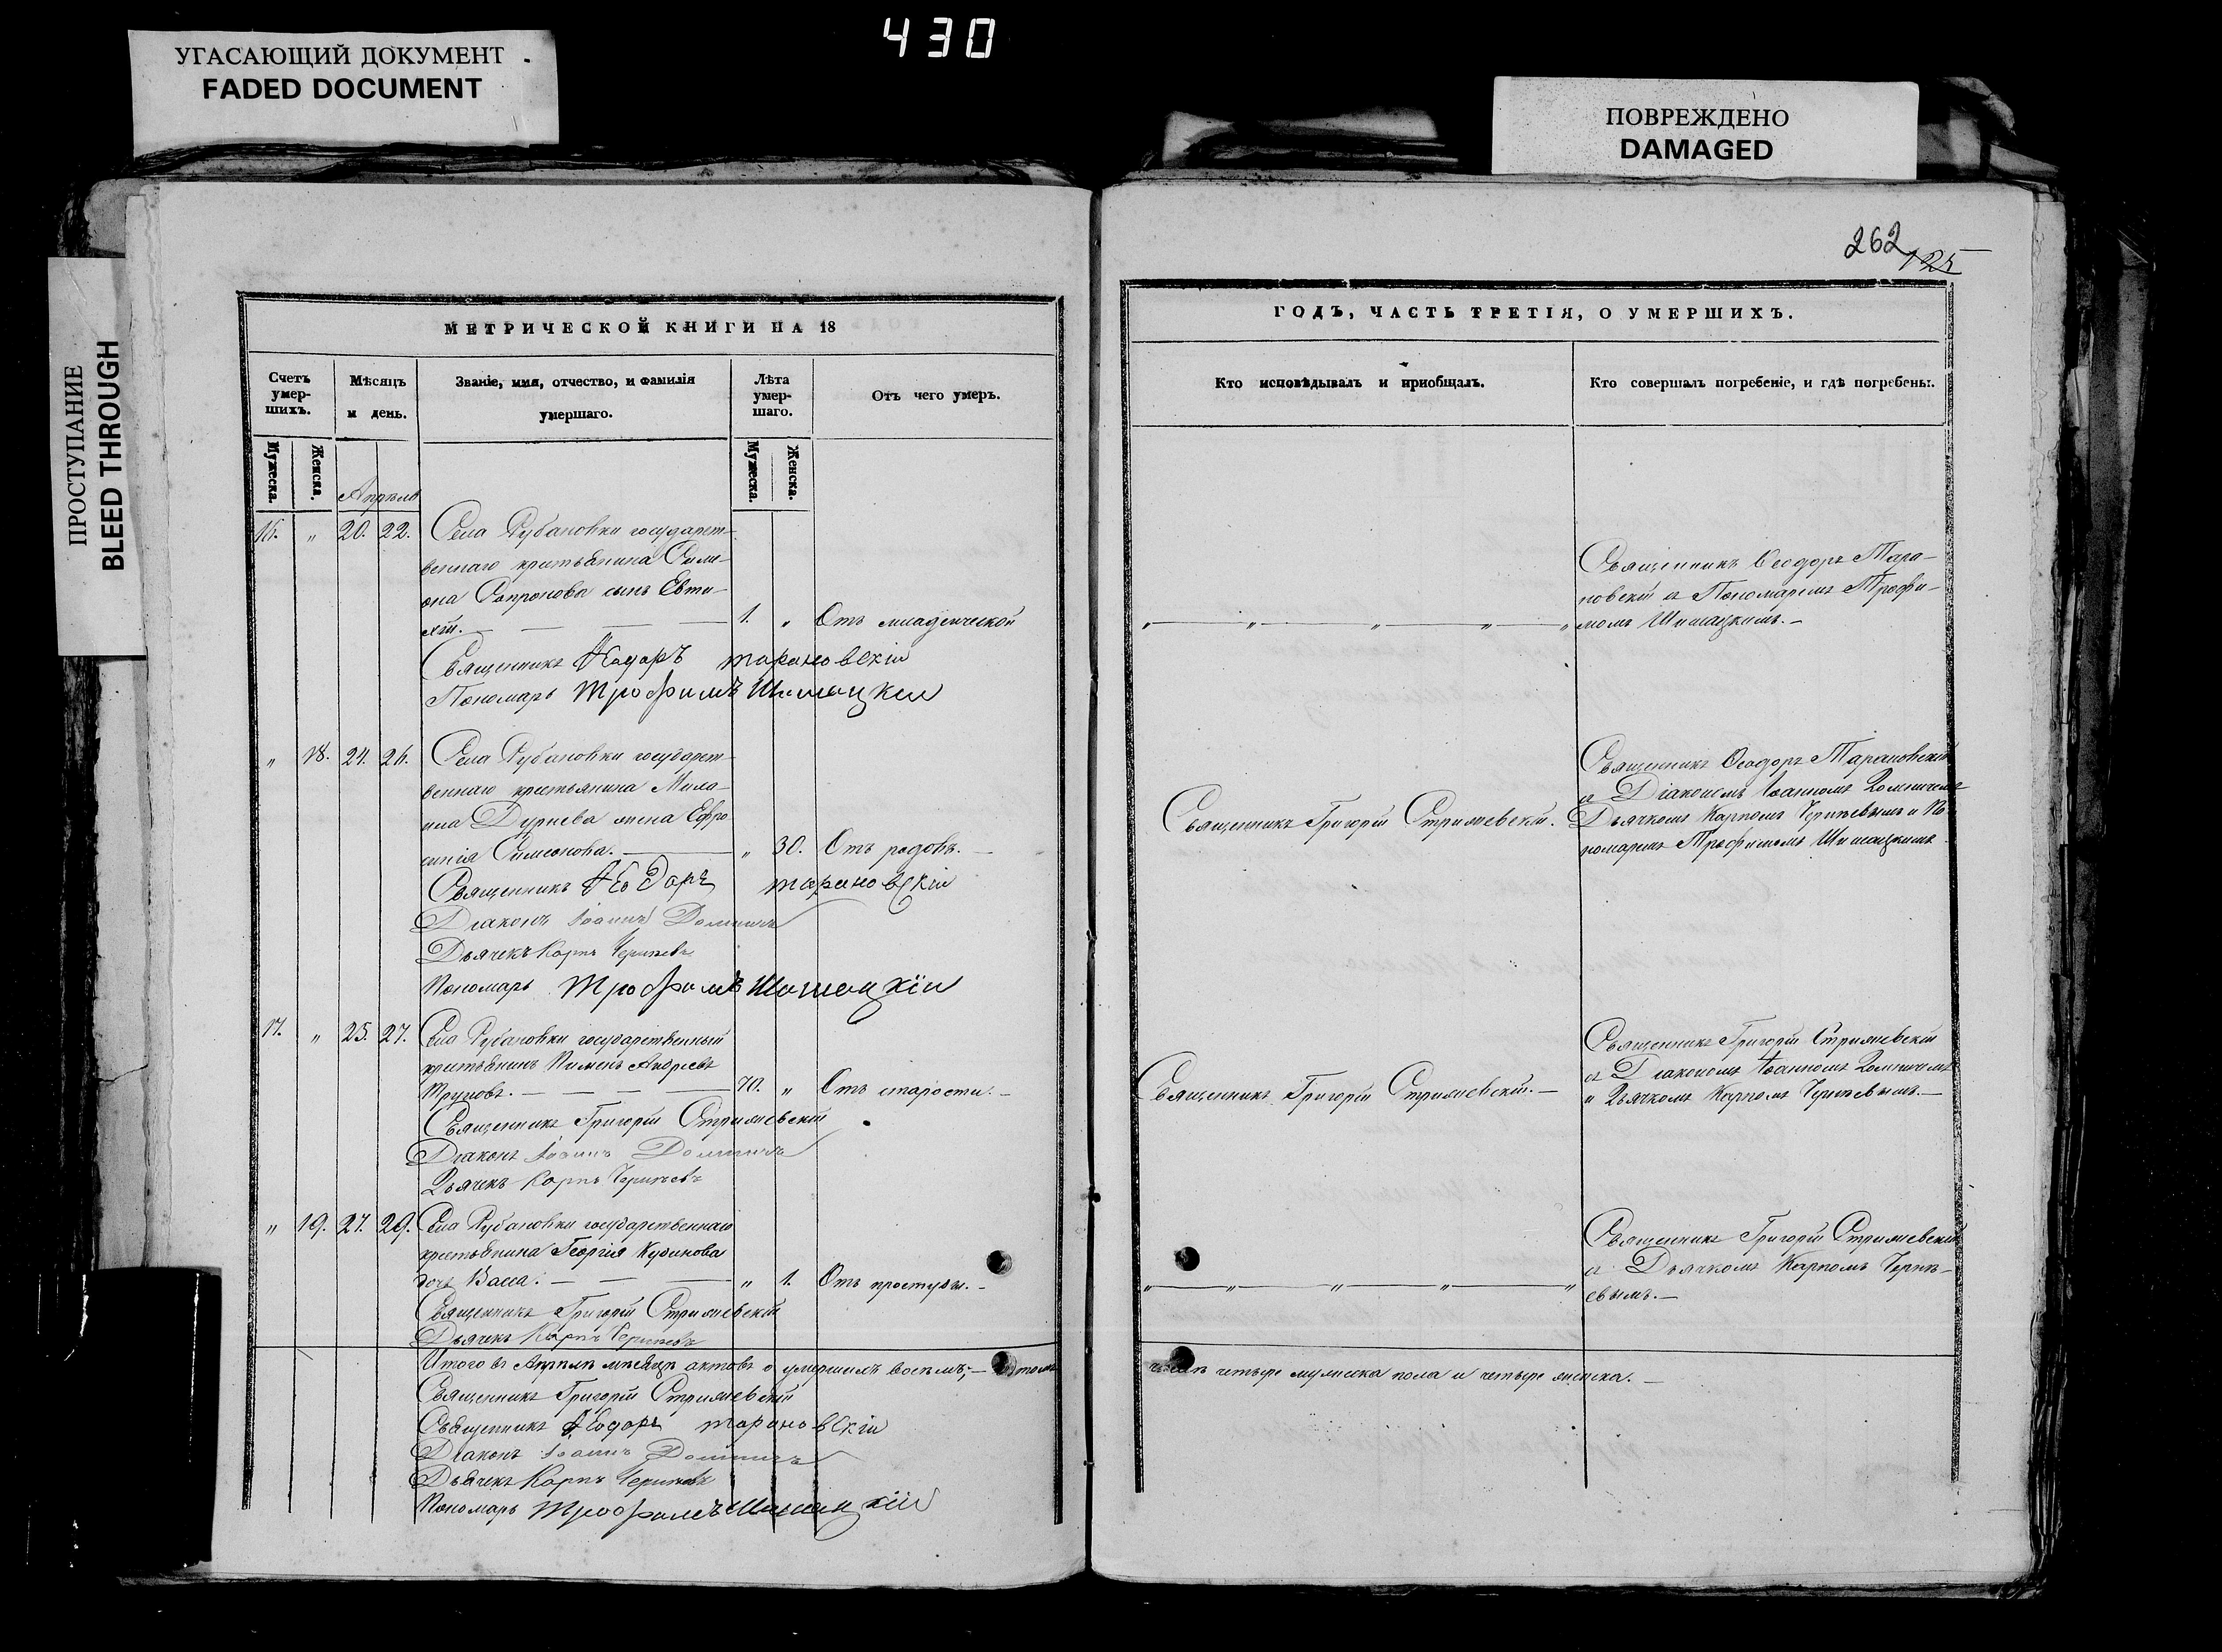 430
УГАСАЮЩИЙ ДОКУМЕНТ
FADED DOCUMENT
ПОВРЕЖДЕНО
DAMAGED
ПРОСТУПАНИЕ
BLEED THROUGH
262
125
МЕТРИЧЕСКОЙ КНИГИ НА 18
Счетъ умер-шихъ.
Мѣсяцъ и день.
Званіе, имя, отчество, и фамилія умершаго.
Лѣта умер-шаго.
Отъ чего умеръ.
Мужеска.
Женска.
Мужеска.
Женска.
Апрѣль
16. „ 20. 22. Села Рубановки государст-
веннаго крестьянина Симе-
она Сапронова сынъ Евти-
хій. — 1. „ Отъ младенческой
Священникъ Ѳеодоръ Тарановскій
Пономарь Трофимъ Шишацкій
„ 18. 24. 26. Села Рубановки государст-
веннаго крестьянина Миха-
ила Дурнева жена Ефро-
синія Симеонова. — „ 30. Отъ родовъ. —
Священникъ Ѳеодоръ Тарановскій
Діаконъ Іоаннъ
Дьячекъ Карпъ
Пономарь Трофимъ Шишацкій
17. „ 25. 27. Села Рубановки государственный
крестьянинъ Пименъ Андреевъ
Трутовъ. — 70. „ Отъ старости. —
Священникъ Григорій Стрижевскій
Діаконъ Іоаннъ
Дьячекъ Карпъ
„ 19. 27. 29. Села Рубановки государственнаго
крестьянина Георгія Кудинова
дочь Васса. — „ 1. Отъ простуды. —
Священникъ Григорій Стрижевскій
Дьячекъ Карпъ
Итого въ Апрѣлѣ мѣсяцѣ актовъ о умершихъ восемь; — въ томъ
Священникъ Григорій Стрижевскій
Священникъ Ѳеодоръ Тарановскій
Діаконъ Іоаннъ
Дьячекъ Карпъ
Пономарь Трофимъ Шишацкій
ГОДЪ, ЧАСТЬ ТРЕТІЯ, О УМЕРШИХЪ.
Кто исповѣдывалъ и пріобщалъ.
Кто совершалъ погребеніе, и гдѣ погребены.
Священникъ Ѳеодоръ Тара-
новскій съ Пономаремъ Трофи-
„ — „ — „ — „ — „ момъ Шишацкимъ. —
Священникъ Ѳеодоръ Тарановскій
съ Діакономъ Іоанномъ
Священникъ Григорій Стрижевскій. Дьячкомъ Карпомъ и По-
номаремъ Трофимомъ Шишацкимъ
Священникъ Григорій Стрижевскій
съ Діакономъ Іоанномъ
Священникъ Григорій Стрижевскій. — и Дьячкомъ Карпомъ
Священникъ Григорій Стрижевскій
съ Дьячкомъ Карпомъ
„ — „ — „ — „ — „ евымъ. —
числѣ четыре мужеска пола и четыре женска. —